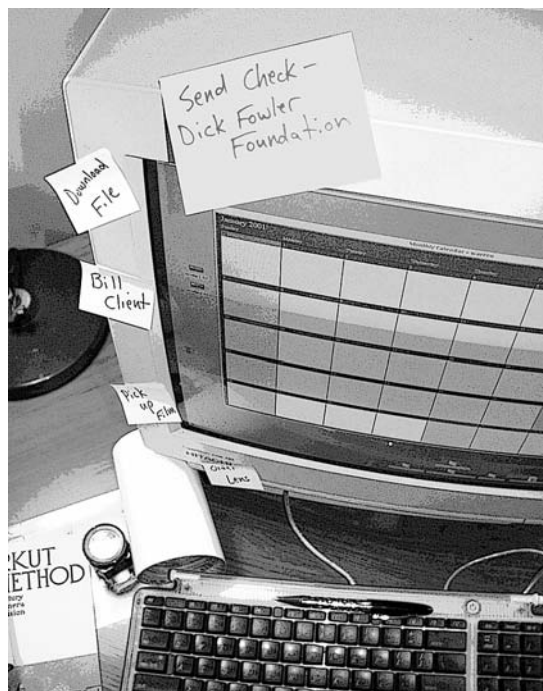 Send Check-
Dick Fowler
Foundation
Download
File
Bill
Client
Pick
up
Film
Order
Lens
January 2001
HITACHI
RKUT
METHOD